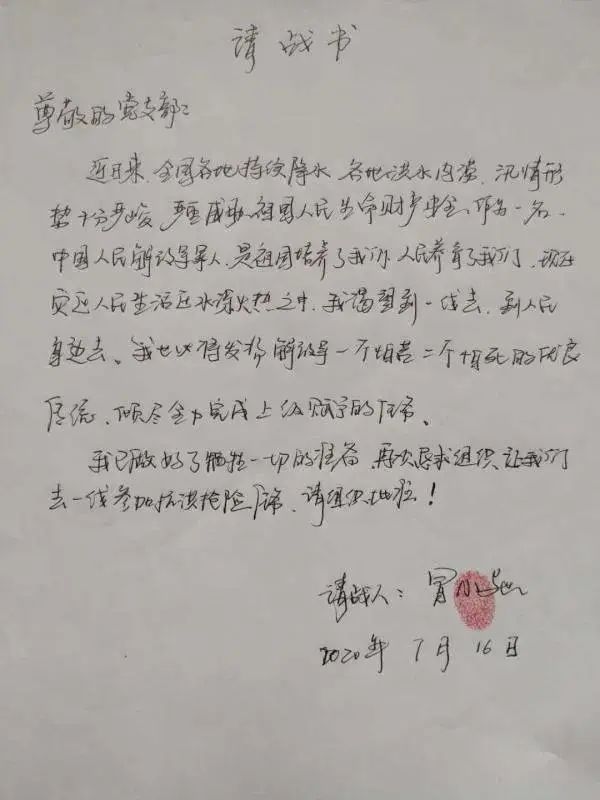 请战书
尊敬的党支部：
近日来，全国各地持续降水，各地洪水内涝，汛情形
势十分严峻，严重威胁祖国人民生命财产安全，作为一名
中国人民解放军军人，是祖国培养了我们，人民养育了我们，现在
灾区人民生活在水深火热之中，我渴望到一线去，到人民
身边去。我也必将发扬解放军一不怕苦二不怕死的优良
传统，倾尽全力完成上级赋予的任务。
我已做好了牺牲一切的准备，再次恳求组织让我们
去一线参加抗洪抢险任务，请组织批准！
请战人：冒
2020年 7月 16日